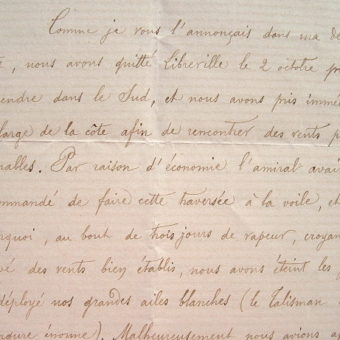 Comme je vous l'annonçais dans ma de
, nous avons quitté Libreville le 2 octobre p
endre dans le Sud, et nous avons pris immé
large de la côte afin de rencontrer des vents p
rables. Par raison d'économie l'amiral avai
ommandé de faire cette traversée à la voile, et
rquoi, au bout de trois jours de vapeur, croyan
é des vents bien établis, nous avons éteint les
déployé nos grandes ailes blanches (le Talisman
ergure énorme). Malheureusement nous avions